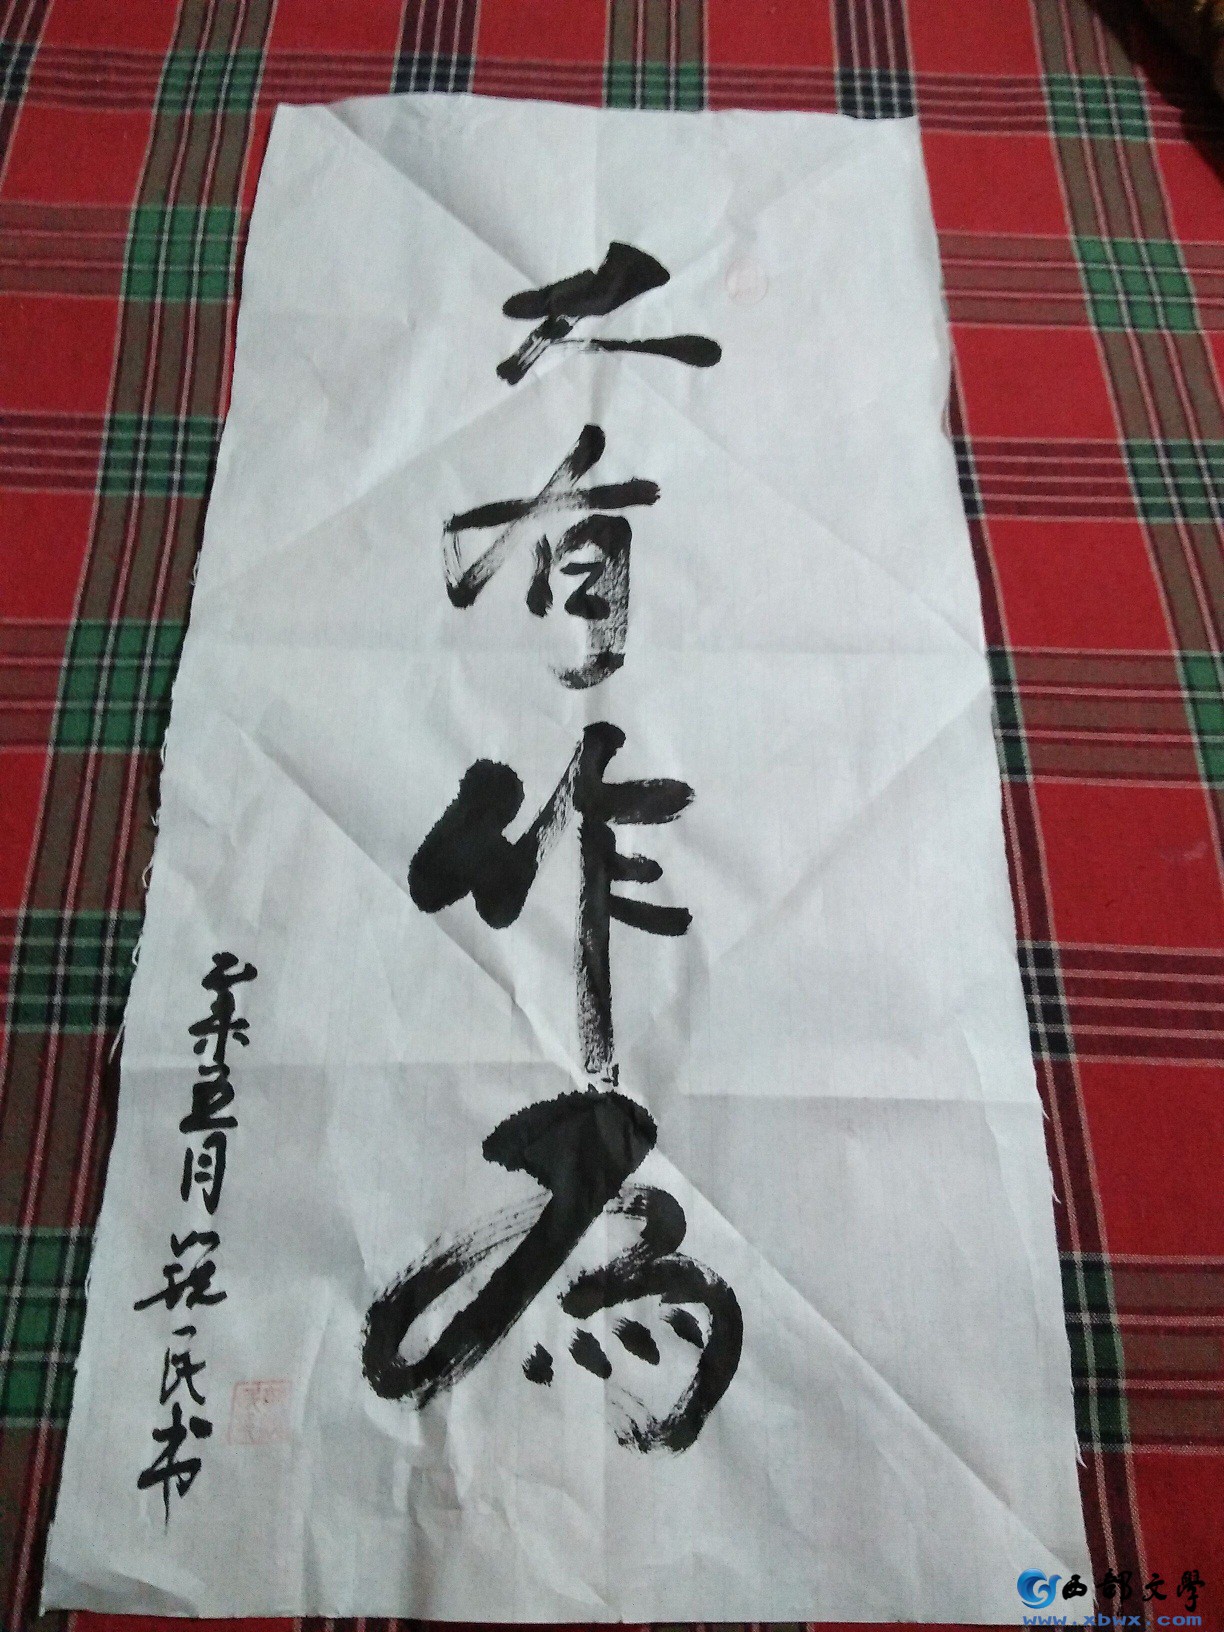 大有作为
乙未五月 民书
西部文學
www.xbwx.com